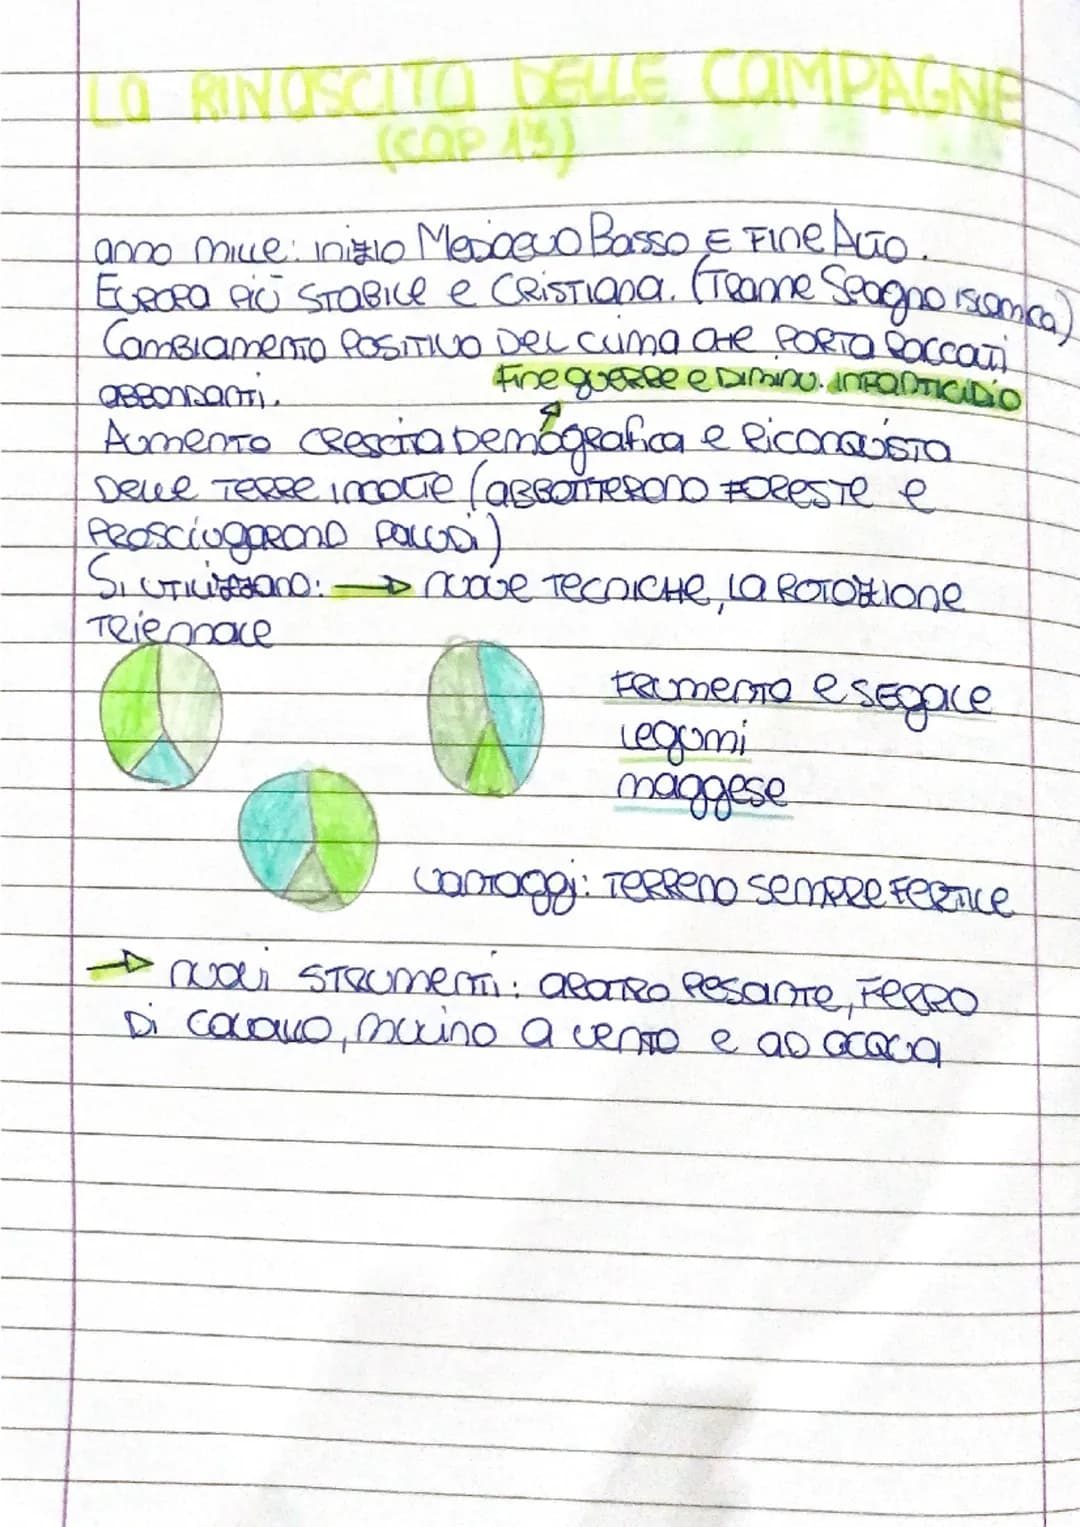 LA RINASCITA DELLE CAMPAGNE
(CAP 13)
anno mille: inizio Medioevo Basso E Fine Alto.
EUROPA PIÙ STABILE e CRISTIANA. (Tranne Spagna islamica)
Cambiamento POSITIVO DEL clima che PORTA Raccolti
abbondanti.
Fine guerre e diminu. INFANTICIDIO
Aumento CRESCITA Demografica e Riconquista
Delle TERRE incolte (abbatterono FORESTE e
PROSCIUGARONO PALUDI)
Si utilizzano: → nuove TECNICHE, la ROTAZIONE
TRIENNALE
FRUMENTO e SEGALE
legumi
maggese
Vantaggi: TERRENO SEMPRE FERTILE
→ nuovi STRUMENTI: ARATRO PESANTE, FERRO
Di cavallo, mulino a vento e ad acqua